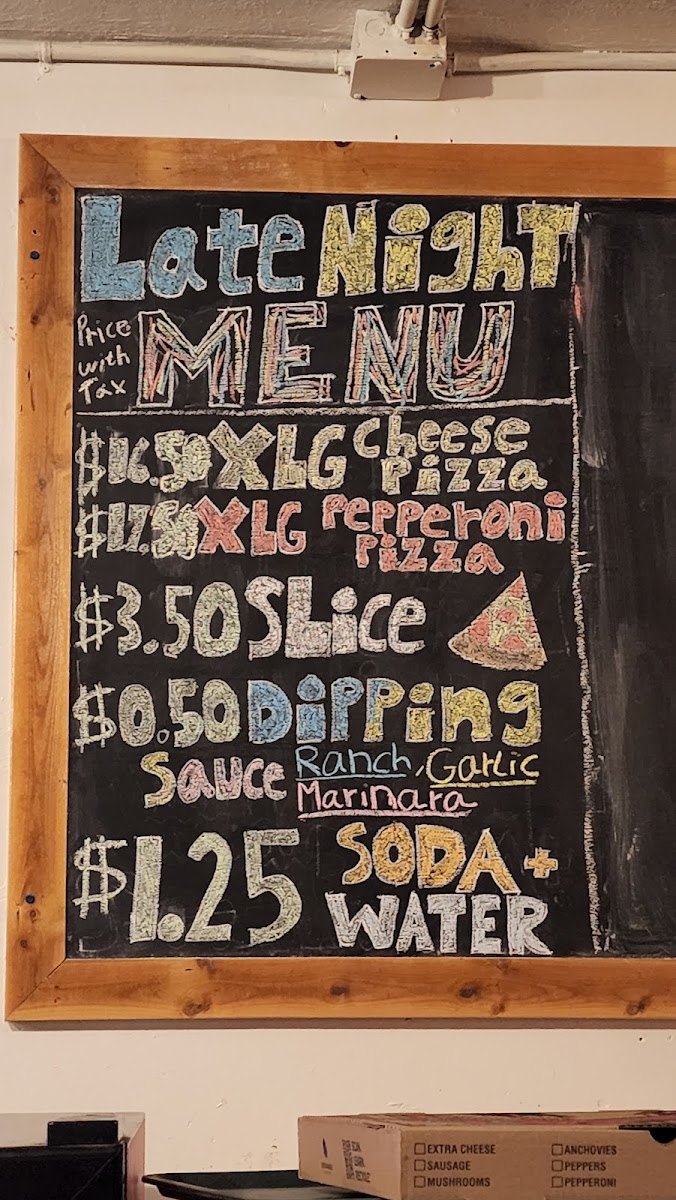 Late Night
Price with Tax
MENU
$16.50 XLG Cheese Pizza
$17.50 XLG Pepperoni Pizza
$3.50 Slice
$0.50 Dipping
Sauce Ranch, Garlic
Marinara
$1.25 SODA +
WATER
EXTRA CHEESE
SAUSAGE
MUSHROOMS
ANCHOVIES
PEPPERS
PEPPERONI